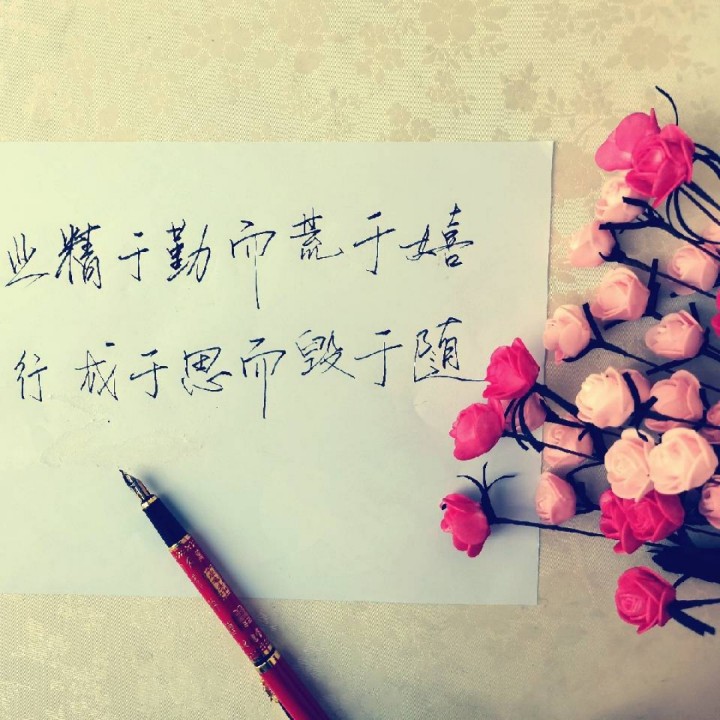 业精于勤而荒于嬉
行成于思而毁于随